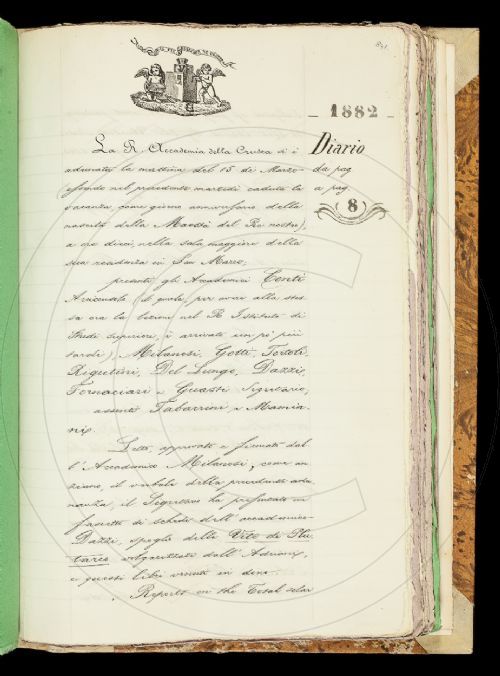 841.
1882
Diario
da pag.
a pag.
8
La R. Accademia della Crusca si è
adunata la mattina del 15 di Marzo
essendo nel precedente martedì caduta la
vacanza, come giorno anniversario della
nascita della Maestà del Re nostro),
a ore dieci, nella sala maggiore della
sua residenza in San Marco;
presenti gli Accademici Conti
Arciconsolo (il quale, per aver alla stes-
sa ora la lezione nel R. Istituto di
Studi superiori, è arrivato un po' più
tardi), Milanesi, Gotti, Tortoli,
Rigutini, Del Lungo, Dazzi,
Fornaciari e Guasti Segretario,
assenti Tabarrini e Mamia-
ni.
Letto, approvato e firmato dal
l'Accademico Milanesi, come an
ziano, il verbale della precedente adu
nanza, il Segretario ha presentato un
fascetto di schede dell'accademico
Dazzi, spoglio delle Vite di Plu
tarco volgarizzate dall'Adriani,
e questi libri venuti in dono:
Report on the Total solar